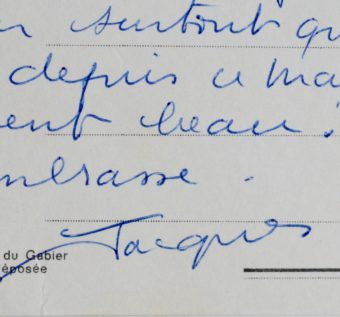 surtout qu
depuis ce ma
ent beau!
mbrasse.
Jacques
du Gabier
éposée